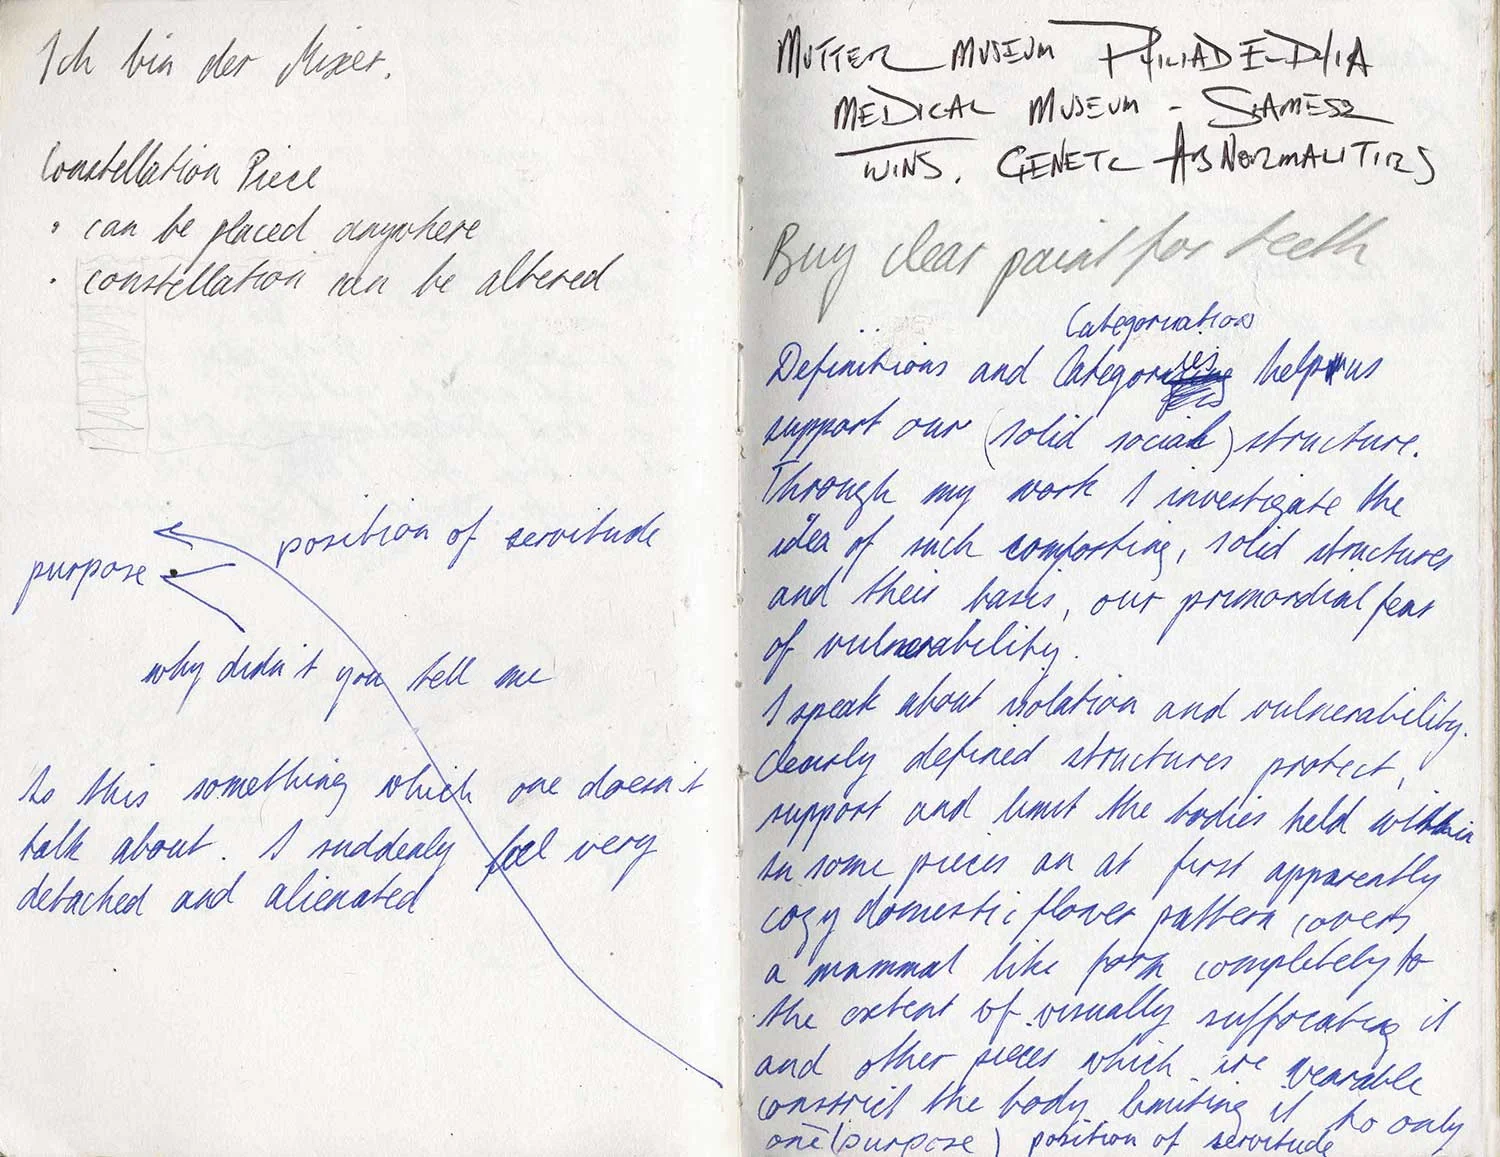 Ich bin der Mixer.
Constellation Piece
• can be placed anywhere
• constellation can be altered
position of servitude
purpose
why didn't you tell me
Is this something which one doesn't
talk about. I suddenly feel very
detached and alienated
MUTTER MUSEUM PHILIADELPHIA
MEDICAL MUSEUM - SIAMESE
TWINS. GENETC ABNORMALITIES
Buy clear paint for teeth
Categorisations
Definitions and Categories help us
support our (solid social) structure.
Through my work I investigate the
idea of such comforting, solid structures
and their basis, our primordial fear
of vulnerability.
I speak about isolation and vulnerability.
Clearly defined structures protect,
support and limit the bodies held within
In some pieces an at first apparently
cozy domestic flower pattern covers
a mammal like form completely to
the extent of visually suffocating it
and other pieces which are wearable
constrict the body limiting it to only
one (purpose) position of servitude